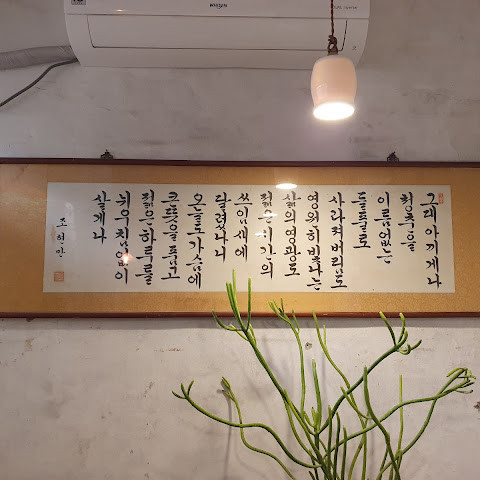 WHISEN
그대 아끼게나
청춘을
이름없는
들풀로
사라져버림도
영원히 빛나는
삶의 영광도
젊은 시간의
쓰임새에
달렸나니
오늘도 가슴에
큰 뜻을 품고
젊은 하루를
뉘우침없이
살게나